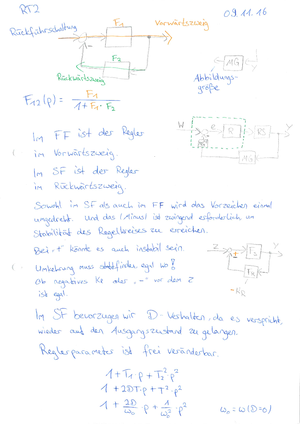 RT2
09.11.16
Rückführschaltung
F1
Vorwärtszweig
F2
Rückwärtszweig
MG
Abbildungs-
größe
F12(p) = F1 / 1+F1·F2
Im FF ist der Regler
im Vorwärtszweig.
Im SF ist der Regler
im Rückwärtszweig.
W
e
R
RS
Y
MG
Sowohl in SF als auch in FF wird das Vorzeichen einmal
umgedreht. Und das (Minus) ist zwingend erforderlich um
Stabilität des Regelkreises zu erreichen.
Bei "+" könnte es auch instabil sein.
Umkehrung muss stattfinden egal wo!
Ob negatives KR oder "-" vor dem Z
ist egal.
Z
Y
-KR
Im SF bevorzuges wir D-Verhalten, da es verspricht,
wieder auf den Ausgangszustand zu gelangen.
Reglerparameter ist frei veränderbar.
1+T1·p+T2²·p²
1+2DT·p+T²·p²
1+2D/ω0·p+1/ω0²·p²
ω0=ω(D=0)